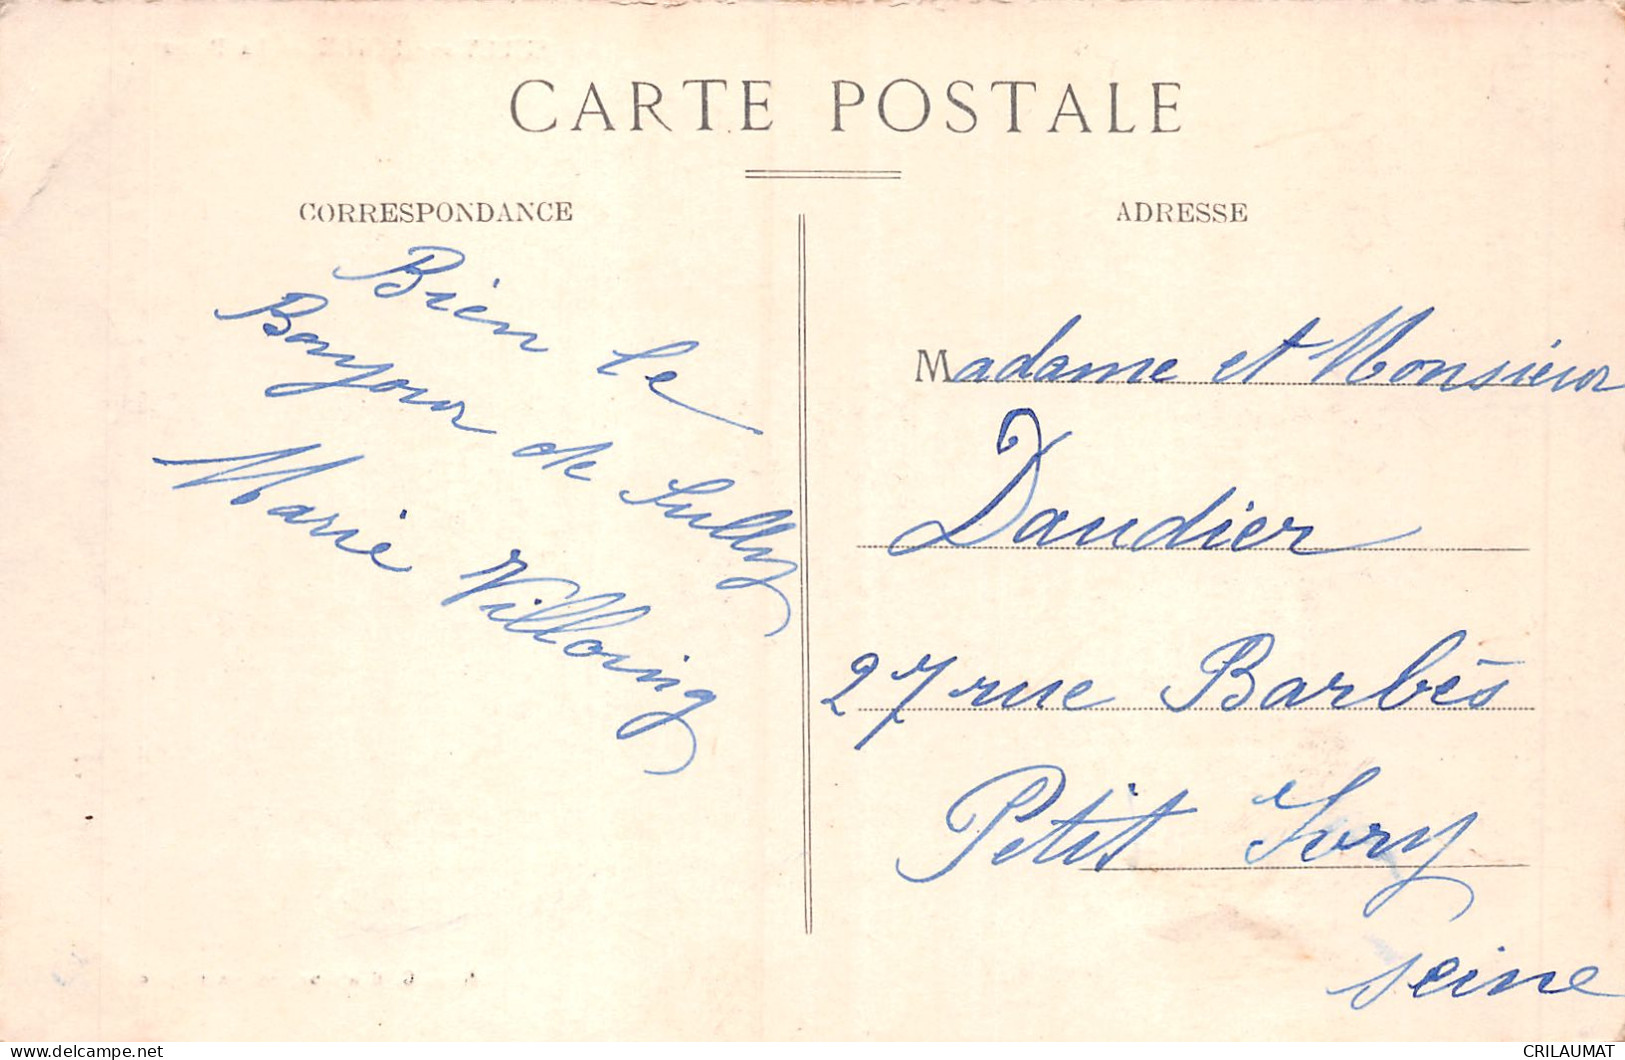 CARTE POSTALE
CORRESPONDANCE
Bien le
Bonjour de Sully
Marie Villoing
ADRESSE
Madame et Monsieur
Daudier
27 rue Barbès
Petit Ivry
Seine
CRILAUMAT